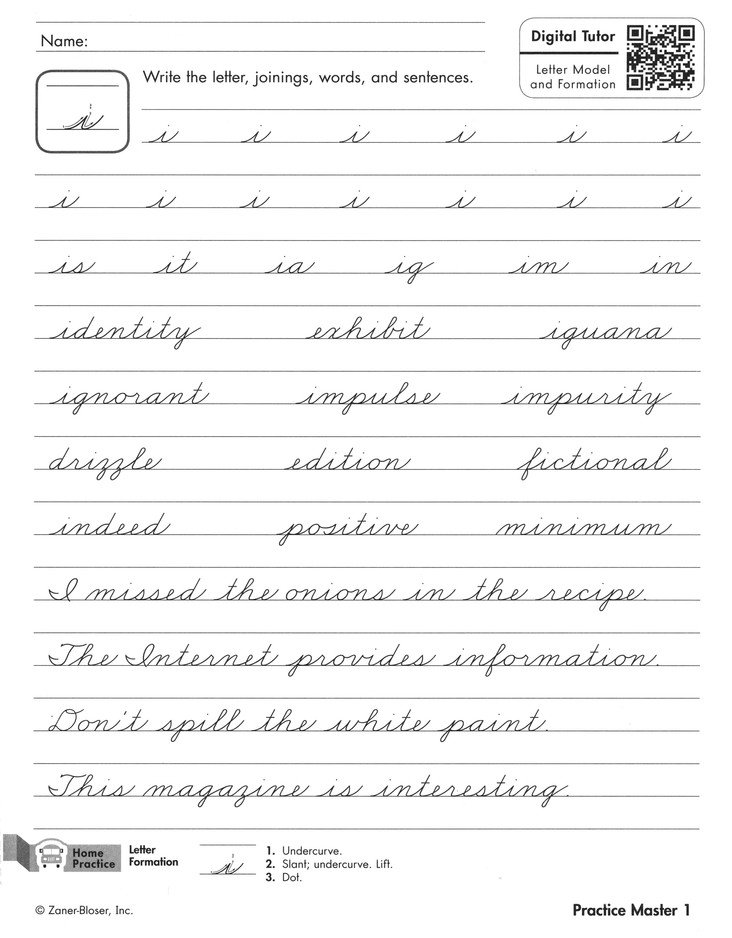 Name:
Digital Tutor
Letter Model
and Formation
Write the letter, joinings, words, and sentences.
i
i i i i i i
i i i i i i i
is it ia ig im in
identity exhibit iguana
ignorant impulse impurity
drizzle edition fictional
indeed positive minimum
I missed the onions in the recipe.
The Internet provides information.
Don't spill the white paint.
This magazine is interesting.
Home
Practice
Letter
Formation
i
1. Undercurve.
2. Slant; undercurve. Lift.
3. Dot.
© Zaner-Bloser, Inc.
Practice Master 1